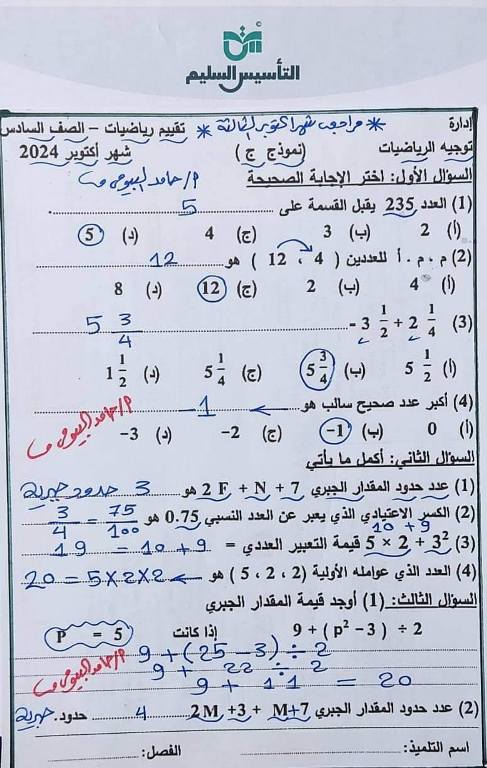 التأسيس السليم
إدارة * مراجعة شهر أكتوبر الثالثة * تقييم رياضيات – الصف السادس
توجيه الرياضيات (نموذج ج) شهر أكتوبر 2024
السؤال الأول: اختر الإجابة الصحيحة م/حامد البيومى
(1) العدد 235 يقبل القسمة على ..... 5 .....
(أ) 2 (ب) 3 (ج) 4 (د) 5
(2) م . م . أ للعددين ( 4 ، 12 ) هو ..... 12 .....
(أ) 4 (ب) 2 (ج) 12 (د) 8
(3) 2 1/4 + 3 1/2 = 5 3/4
(أ) 5 1/2 (ب) 5 3/4 (ج) 5 1/4 (د) 1 1/2
(4) أكبر عدد صحيح سالب هو ..... -1 .....
(أ) 0 (ب) -1 (ج) -2 (د) -3
م/حامد البيومى
السؤال الثاني: أكمل ما يأتي
(1) عدد حدود المقدار الجبري 2 F + N + 7 هو ..... 3 حدود جبرية
(2) الكسر الاعتيادي الذي يعبر عن العدد النسبي 0.75 هو 75/100 = 3/4
10 + 9
(3) 5 × 2 + 3² قيمة التعبير العددي = 10 + 9 = 19
(4) العدد الذي عوامله الأولية (2 ، 2 ، 5) هو 5×2×2 = 20
السؤال الثالث: (1) أوجد قيمة المقدار الجبري
9 + ( p² – 3 ) ÷ 2 إذا كانت P = 5
9 + (25 - 3) ÷ 2
9 + 22 ÷ 2
9 + 11 = 20
م/حامد البيومى
(2) عدد حدود المقدار الجبري 2M +3 + M+7 ..... 4 ..... حدود. جبرية
اسم التلميذ: الفصل: